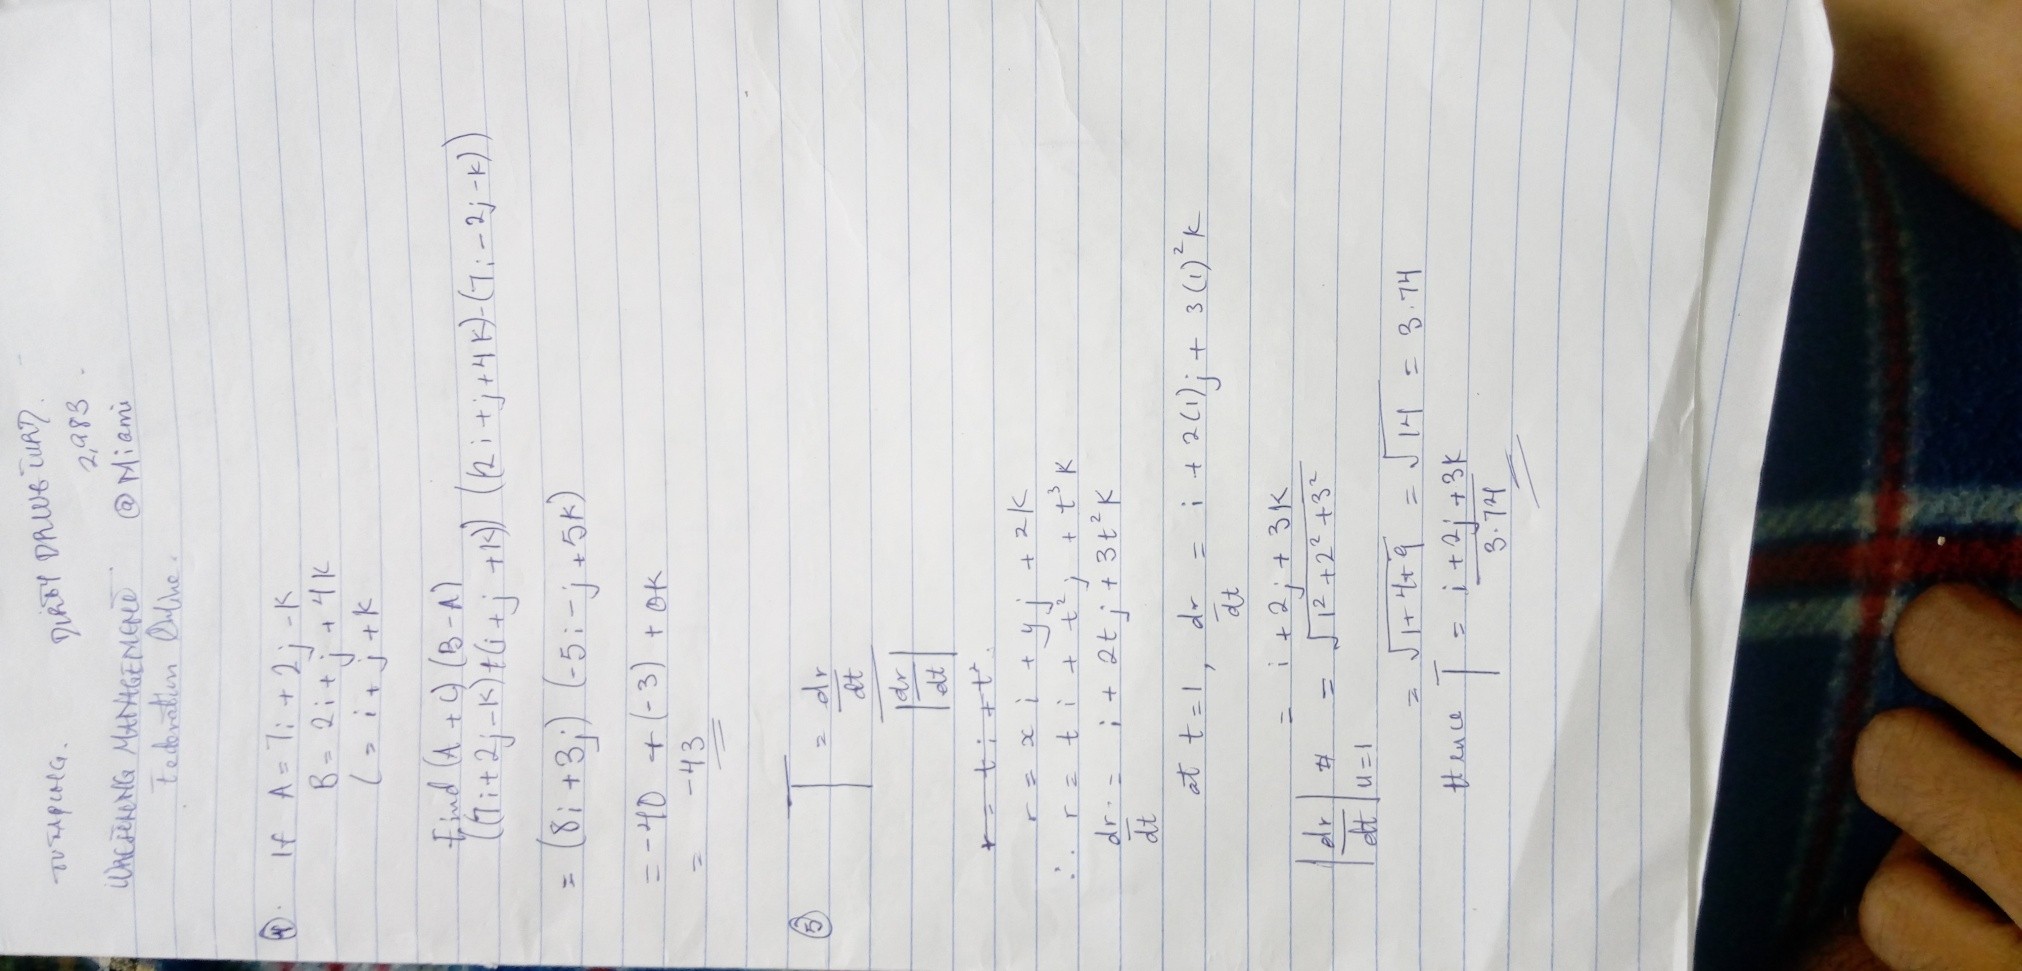 DIRTY
2,983.
WRESTLING MANAGEMENT @ Miami
Online.
④. If A = 7i + 2j - K
B = 2i + j + 4K
C = i + j + K
Find (A + C) (B - A)
((7i + 2j - K) + (i + j + K)) ((2i + j + 4K) - (7i - 2j - K))
= (8i + 3j) (-5i - j + 5K)
= -40 + (-3) + 0K
= -43
⑤ T = dr/dt
|dr/dt|
r = ti + t².
r = xi + yj + 2K
∴ r = ti + t²j + t³K
dr/dt = i + 2tj + 3t²K
at t = 1, dr/dt = i + 2(1)j + 3(1)²K
= i + 2j + 3K
|dr/dt| u=1 = √1² + 2² + 3²
= √1 + 4 + 9 = √14 = 3.74
Hence T = i + 2j + 3K / 3.74